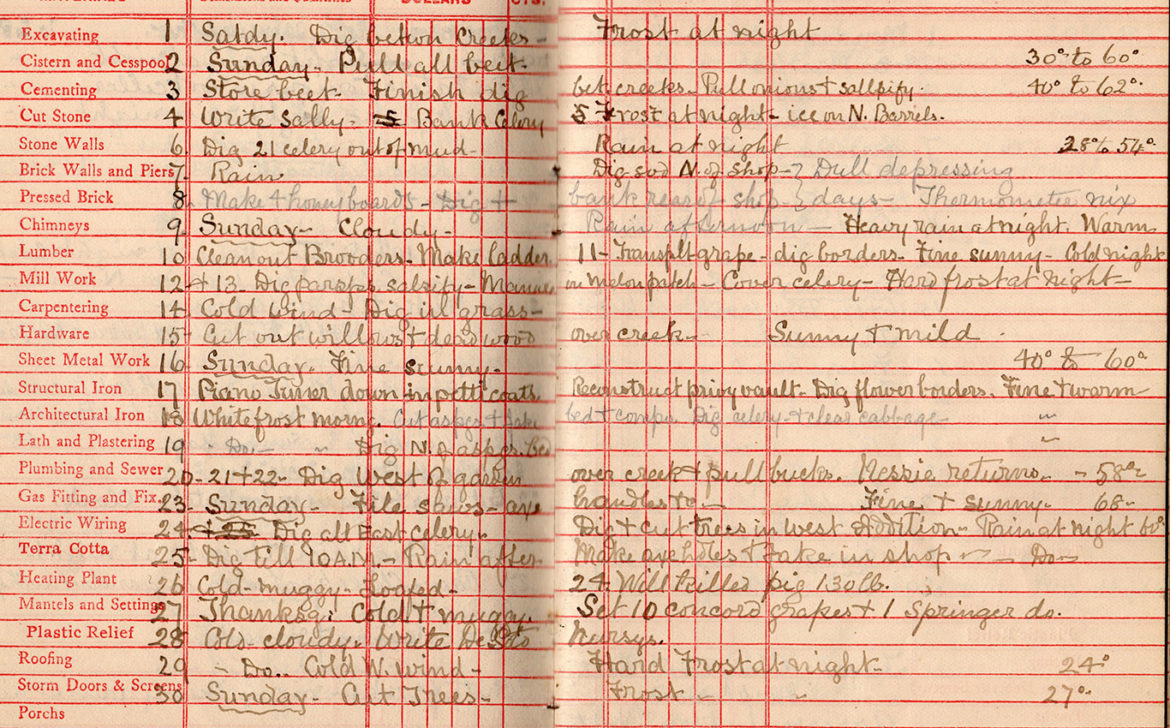 DOLLARS CTS.
Excavating 1 Satdy. Dig betwn Creeks - Frost at night
Cistern and Cesspool 2 Sunday - Pull all beet. 30° to 60°
Cementing 3 Store beet. Finish dig bet creeks - Pull onions + sallsify. 40° to 62°
Cut Stone 4 Write Sally - 5 Bank Celery 5 Frost at night - ice on N. Barrels.
Stone Walls 6 Dig 21 celery out of mud - Rain at night 28° to 54°
Brick Walls and Piers 7 - Rain Dig sod N. of shop - } Dull depressing
Pressed Brick 8 Make 4 honey boards - Dig + bank rear of shop } days - Thermometer nix
Chimneys 9 Sunday - Cloudy - Rain afternoon - Heavy rain at night. Warm
Lumber 10 Clean out Brooders - Make ladder 11 - Transplt grape - dig borders - Fine sunny - Cold night
Mill Work 12 + 13. Dig parsps. salsify - Manure in melon patch - Cover celery - Hard frost at night -
Carpentering 14 Cold wind - Dig in grass -
Hardware 15 - Cut out willows + dead wood over creek - Sunny + mild
Sheet Metal Work 16 Sunday. Fine sunny. 40° to 60°
Structural Iron 17 Piano Tuner down in petticoats Reconstruct privy vault. Dig flower borders. Fine + warm
Architectural Iron 18 White frost morng. Cut aspgs + take bed + comps. Dig celery + clear cabbage - "
Lath and Plastering 19 " Do. - " Dig N. of aspgs. bed "
Plumbing and Sewer 20 - 21 + 22 - Dig West of garden over creek + pull bucks. Nessie returns. - 58°
Gas Fitting and Fix. 23 - Sunday - File saws - axe handles to - Fine + sunny. 68 -
Electric Wiring 24 + 25 Dig all East celery. Dig + cut trees in west Addition - Rain at night 60°
Terra Cotta 25 - Dig till 10 A.M. - Rain after - Make axe holes + take in shop - Do -
Heating Plant 26 Cold - muggy - Loafed - 24. Will killed pig 130 lb.
Mantels and Settings 27 Thanksg. Cold + muggy. Set 10 concord grapes + 1 Springer do.
Plastic Relief 28 Cold - cloudy. Write Nursys.
Roofing 29 - Do. . Cold W. wind - Hard Frost at night - 24°
Storm Doors & Screens 30 Sunday - Cut Trees - Frost - " 27°
Porchs